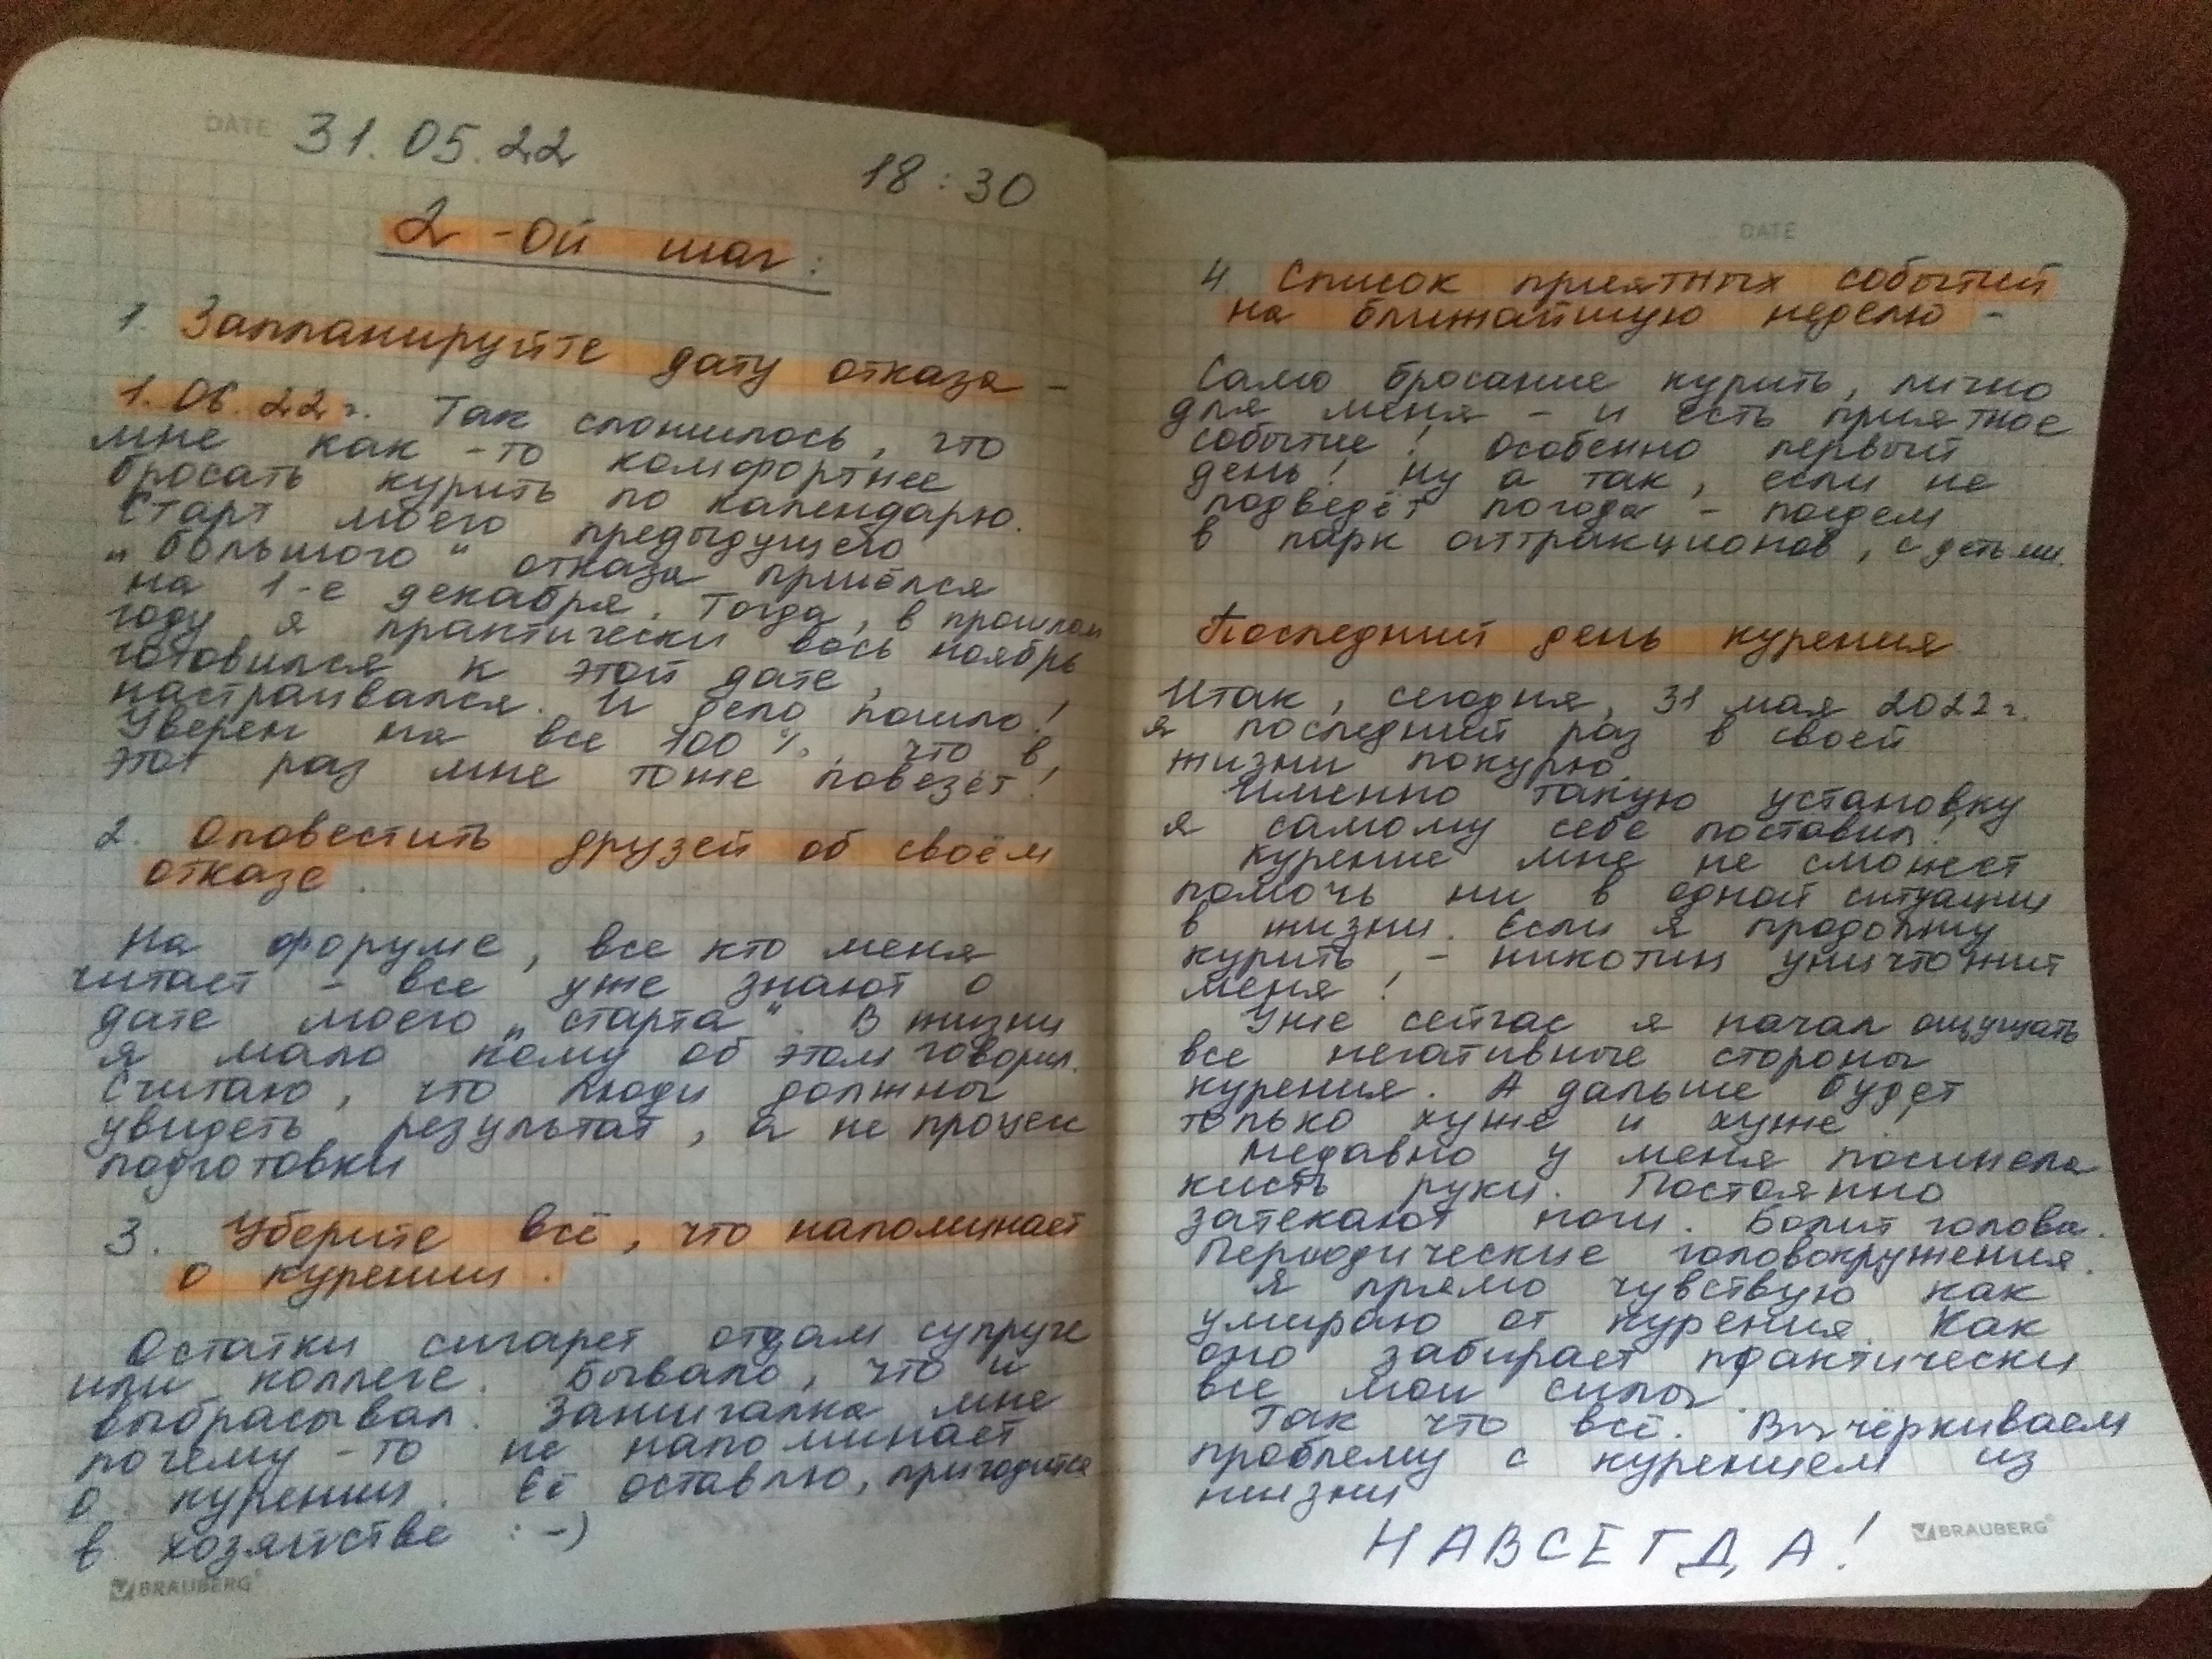 DATE 31.05.22
18:30
2-ой шаг:
1. Запланируйте дату отказа -
1.06.22 г. Так сложилось, что
мне как-то комфортнее
бросать курить по календарю.
Старт моего предыдущего
„большого“ отказа пришёлся
на 1-е декабря. Тогда, в прошлом
году я практически весь ноябрь
готовился к этой дате,
настраивался. И дело пошло!
Уверен на все 100%, что в
этот раз мне тоже повезёт!
2. Оповестить друзей об своём
отказе.
На форуме, все кто меня
читает - все уже знают о
дате моего „старта“. В жизни
я мало кому об этом говорил.
Считаю, что люди должны
увидеть результат, а не процесс
подготовки
3. Уберите всё, что напоминает
о курении.
Остатки сигарет отдам супруге
или коллеге. Бывало, что и
выбрасывал. Зажигалка мне
почему-то не напоминает
о курении. Её оставлю, пригодится
в хозяйстве :-)
BRAUBERG
DATE
4. Список приятных событий
на ближайшую неделю -
Само бросание курить, лично
для меня - и есть приятное
событие! Особенно первый
день! Ну а так, если не
подведёт погода - поедем
в парк аттракционов, с детьми.
Последний день курения
Итак, сегодня, 31 мая 2022 г.
я последний раз в своей
жизни покурю.
Именно такую установку
я самому себе поставил!
Курение мне не сможет
помочь ни в одной ситуации
в жизни. Если я продолжу
курить, - никотин уничтожит
меня!
Уже сейчас я начал ощущать
все негативные стороны
курения. А дальше будет
только хуже и хуже!
Недавно у меня посинела
кисть руки. Постоянно
затекают ноги. Болит голова.
Периодические головокружения.
Я прямо чувствую как
умираю от курения. Как
оно забирает практически
все мои силы.
Так что всё. Вычёркиваем
проблему с курением из
жизни
НАВСЕГДА!
BRAUBERG